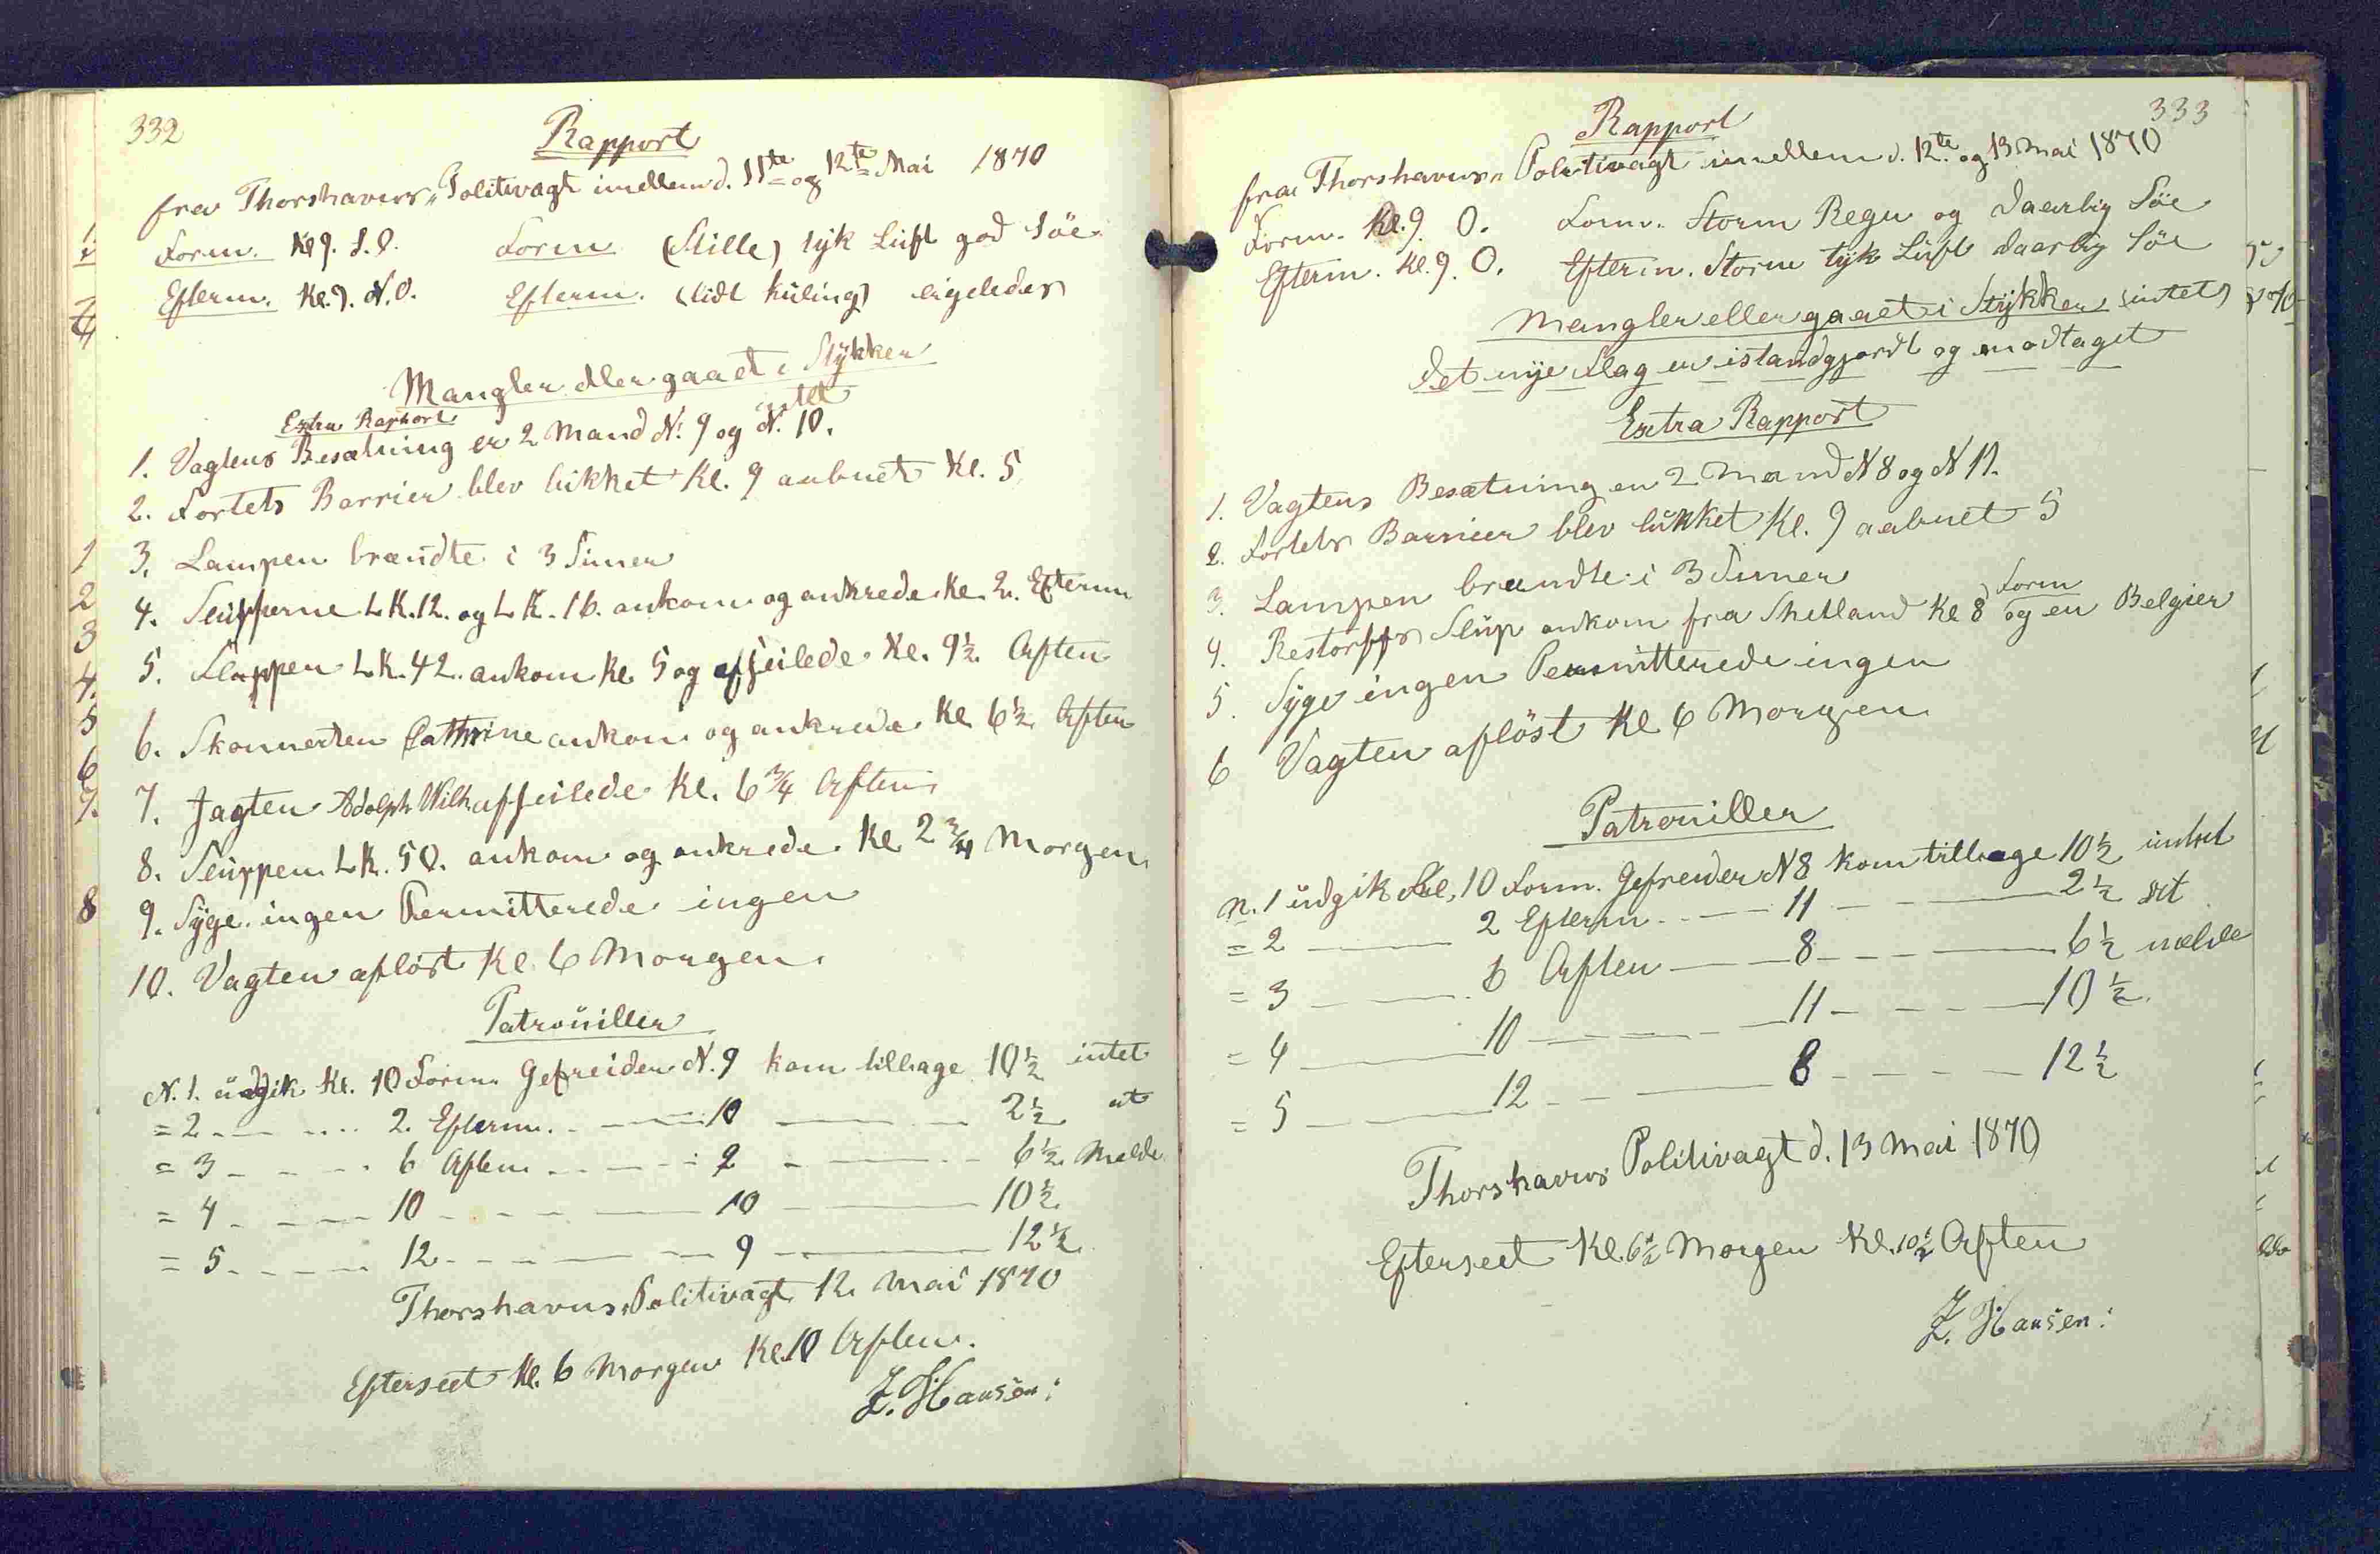 332
Rapport
fra Thorshavns Politivagt imellem d. 11te og 12te Mai 1870
Form. Kl 9. S.O. Form (Stille) tyk Luft god Söe
Efterm. Kl. 9. N.O. Efterm. (lidt Kuling) ligeledes
Mangler eller gaaet i Stykker
intet
Extra Raport
1. Vagtens Besætning er 2 Mand N. 9 og N. 10.
2. Fortets Barrier blev lukket Kl. 9 aabnet Kl. 5
3. Lampen brændte i 3 Timer
4. Slupperne L K. 12. og L K. 16. ankom og ankrede Kl. 2. Efterm
5. Sluppen L K. 42. ankom Kl. 5 og afseilede Kl. 9½ Aften
6. Skonnerten Cathrine ankom og ankrede Kl 6½ Aften
7. Jagten Adolph Wilh. afseilede Kl. 6¾ Aften
8. Sluppen L K. 50. ankom og ankrede Kl 2¾ Morgen
9. Syge ingen Permitterede ingen
10. Vagten aflöst Kl. 6 Morgen.
Patrouiller
N. 1. udgik Kl. 10 Form. Gefreider N. 9 kom tilbage 10½ intet
= 2 — 2. Efterm. — 10 — 2½ at
= 3 — 6 Aften — 9 — 6½ Melde
= 4 — 10 — 10 — 10½
= 5 — 12 — 9 — 12½
Thorshavns Politivagt 12. Mai 1870
Efterseet Kl. 6 Morgen Kl. 10 Aften.
Z. Hansen:
333
Rapport
fra Thorshavns Politivagt imellem d. 12te og 13 Mai 1870
Form. Kl. 9 O. Form. Storm Regn og daarlig Söe
Efterm. Kl. 9. O. Efterm. Storm tyk Luft daarlig Söe
Mangler eller gaaet i Stykker (intet)
Det nye Flag er istandgjordt og modtaget
Extra Rapport
1. Vagtens Besætning er 2 Mand N 8 og N 11.
2. Fortets Barrier blev lukket Kl. 9 aabnet 5
3. Lampen brændte i 3 Timer
4. Restorffs Slup ankom fra Shetland Kl 8 Form og en Belgier
5. Syge ingen Permitterede ingen
6 Vagten aflöst Kl 6 Morgen
Patrouiller
N. 1 udgik Kl. 10 Form. Gefreider N 8 kom tilbage 10½ intet
= 2 — 2 Efterm — 11 — 2½ at
= 3 — 6 Aften — 8 — 6½ melde
= 4 — 10 — 11 — 10½
= 5 — 12 — 8 — 12½
Thorshavns Politivagt d. 13 Mai 1870
Efterseet Kl. 6½ Morgen Kl. 10½ Aften
Z. Hansen: